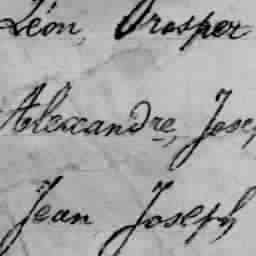 Léon, Prosper
Alexandre, Jose
Jean Joseph